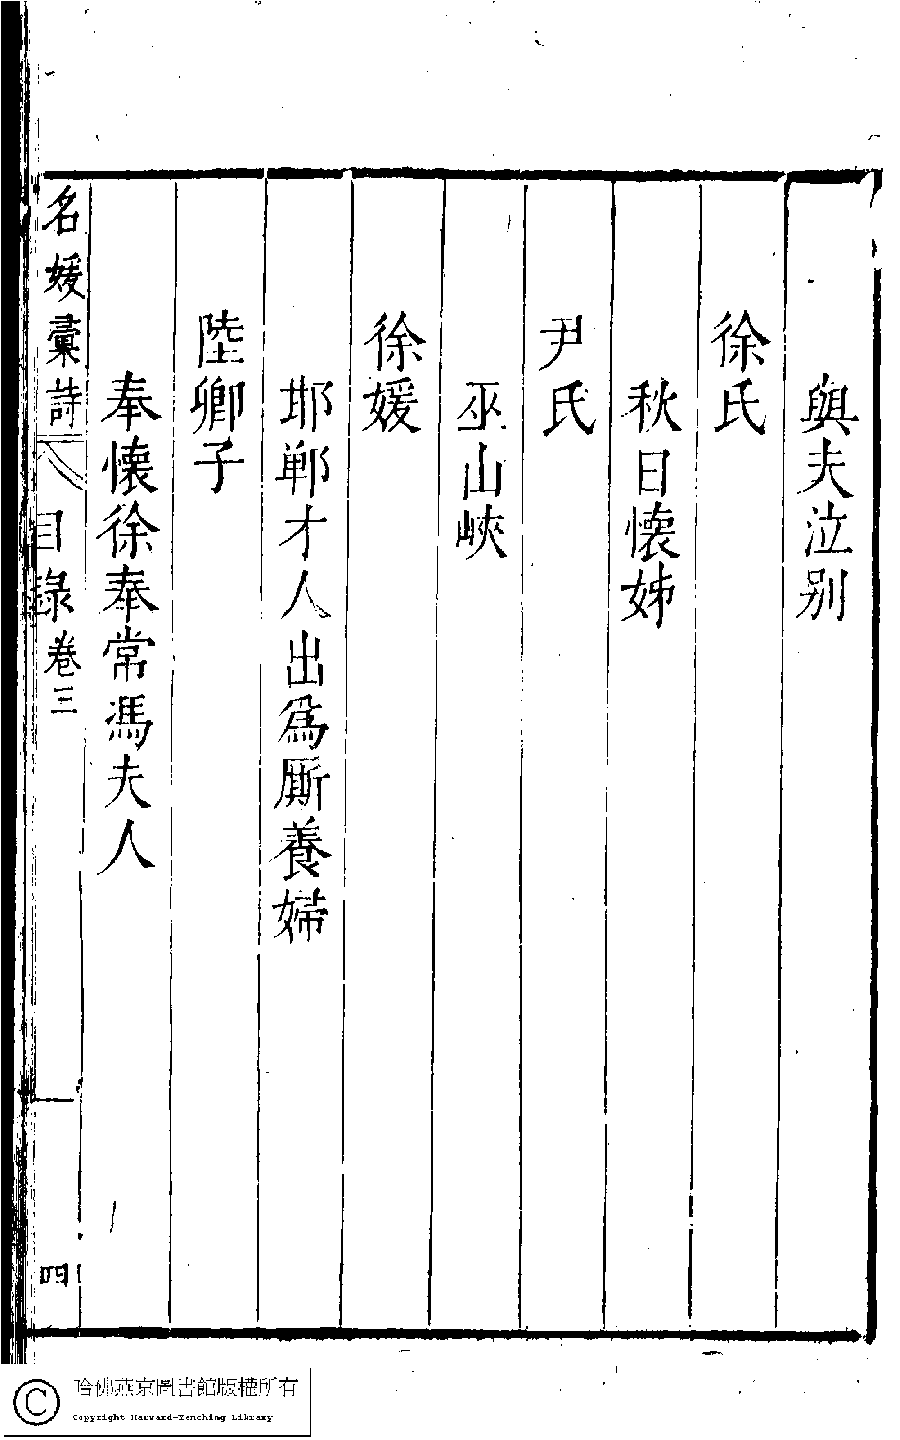 與夫泣别
徐氏
秋日懷姊
尹氏
巫山峽
徐媛
邯鄲才人出爲厮養婦
陸卿子
奉懷徐奉常馮夫人
名媛彙詩 目錄卷三 四
哈佛燕京圖書館版權所有
Copyright Harvard-Yenching Library